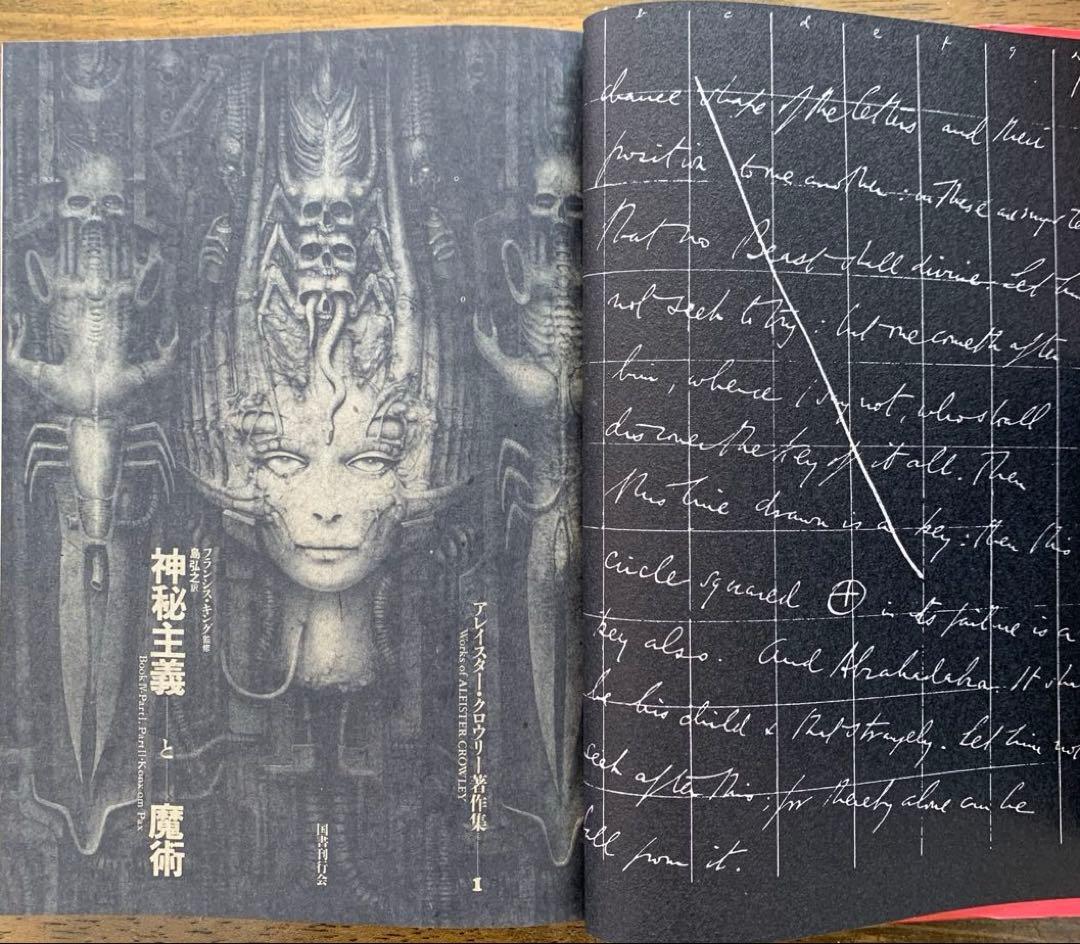 アレイスター・クロウリー著作集 1
Works of ALEISTER CROWLEY
フランシス・キング 監修
島弘之 訳
神秘主義と魔術
Book Ⅳ・Part I, Part II・Konx om Pax
国書刊行会
b c d e f g
chance shape of the letters and their
position to one another: in these are myste
that no Beast shall divine. Let hi
not seek to try: but one cometh after
him, whence i say not, who shall
discover the key of it all. Then
this line drawn is a key: then this
circle squared ⊕ in its failure is a
key also. And Abrahadabra. It sha
be his child & that strangely. Let him not
seek after this; for thereby alone can he
fall from it.